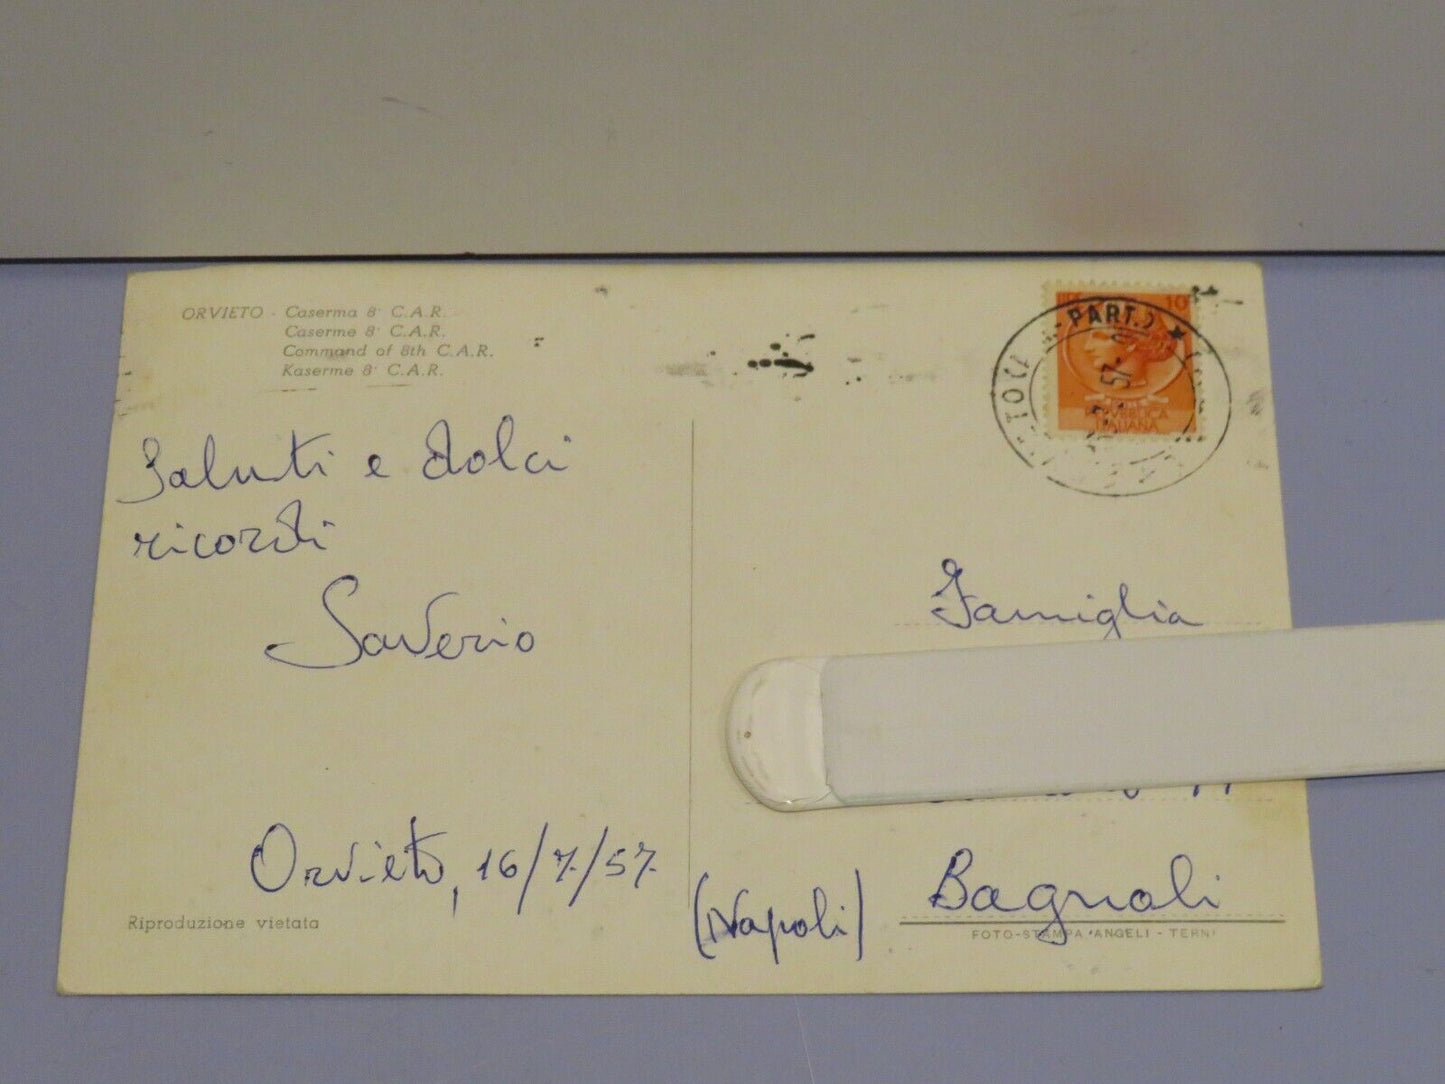 ORVIETO - Caserma 8° C.A.R.
Caserme 8° C.A.R.
Command of 8th C.A.R.
Kaserme 8° C.A.R.
Saluti e dolci
ricordi
Saverio
Orvieto, 16/7/57
Riproduzione vietata
10
PART.)
57
REPUBBLICA
ITALIANA
Famiglia
Bagnoli
(Napoli)
FOTO-STAMPA ANGELI - TERNI